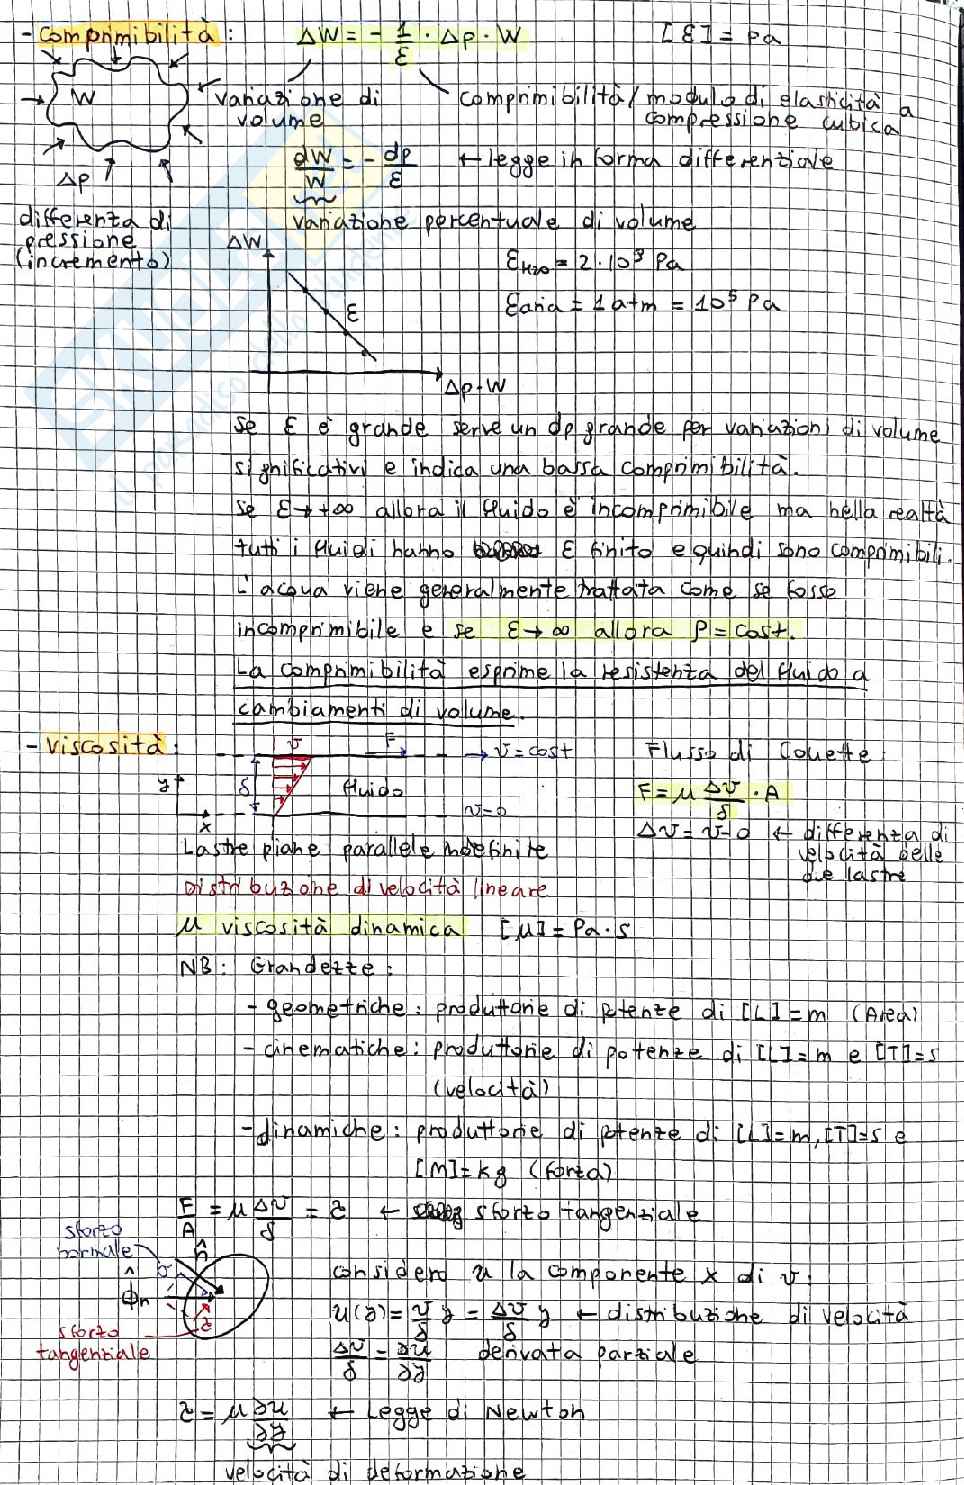 - Comprimibilità: ΔW = - 1/ε · Δp · W [ε] = Pa
W variazione di volume comprimibilità / modulo di elasticità a compressione cubica
Δp dW/W = - dp/ε ← legge in forma differenziale
differenza di pressione (incremento) variazione percentuale di volume
ΔW ε_H2O = 2·10⁹ Pa
ε ε aria = 1 atm = 10⁵ Pa
Δp·W
Se ε è grande serve un dp grande per variazioni di volume
significativi e indica una bassa comprimibilità.
Se ε→+∞ allora il fluido è incomprimibile ma nella realtà
tutti i fluidi hanno ε finito e quindi sono comprimibili.
L'acqua viene generalmente trattata come se fosse
incomprimibile e se ε→∞ allora ρ = cost.
La comprimibilità esprime la resistenza del fluido a
cambiamenti di volume.
- Viscosità: v F v = cost Flusso di Couette
y δ fluido F = μ Δv/δ · A
x v=0 Δv = v-0 ← differenza di velocità delle due lastre
Lastre piane parallele indefinite
Distribuzione di velocità lineare
μ viscosità dinamica [μ] = Pa·s
NB: Grandezze:
- geometriche: produttorie di potenze di [L]=m (Area)
- cinematiche: produttorie di potenze di [L]=m e [T]=s
(velocità)
- dinamiche: produttorie di potenze di [L]=m, [T]=s e
[M]=kg (forza)
F/A = μ Δv/δ = τ ← sforzo tangenziale
sforzo normale σ n̂
considero u la componente x di v:
sforzo tangenziale τ
u(y) = v/δ y = Δv/δ y ← distribuzione di velocità
Δv/δ = ∂u/∂y derivata parziale
τ = μ ∂u/∂y ← Legge di Newton
velocità di deformazione